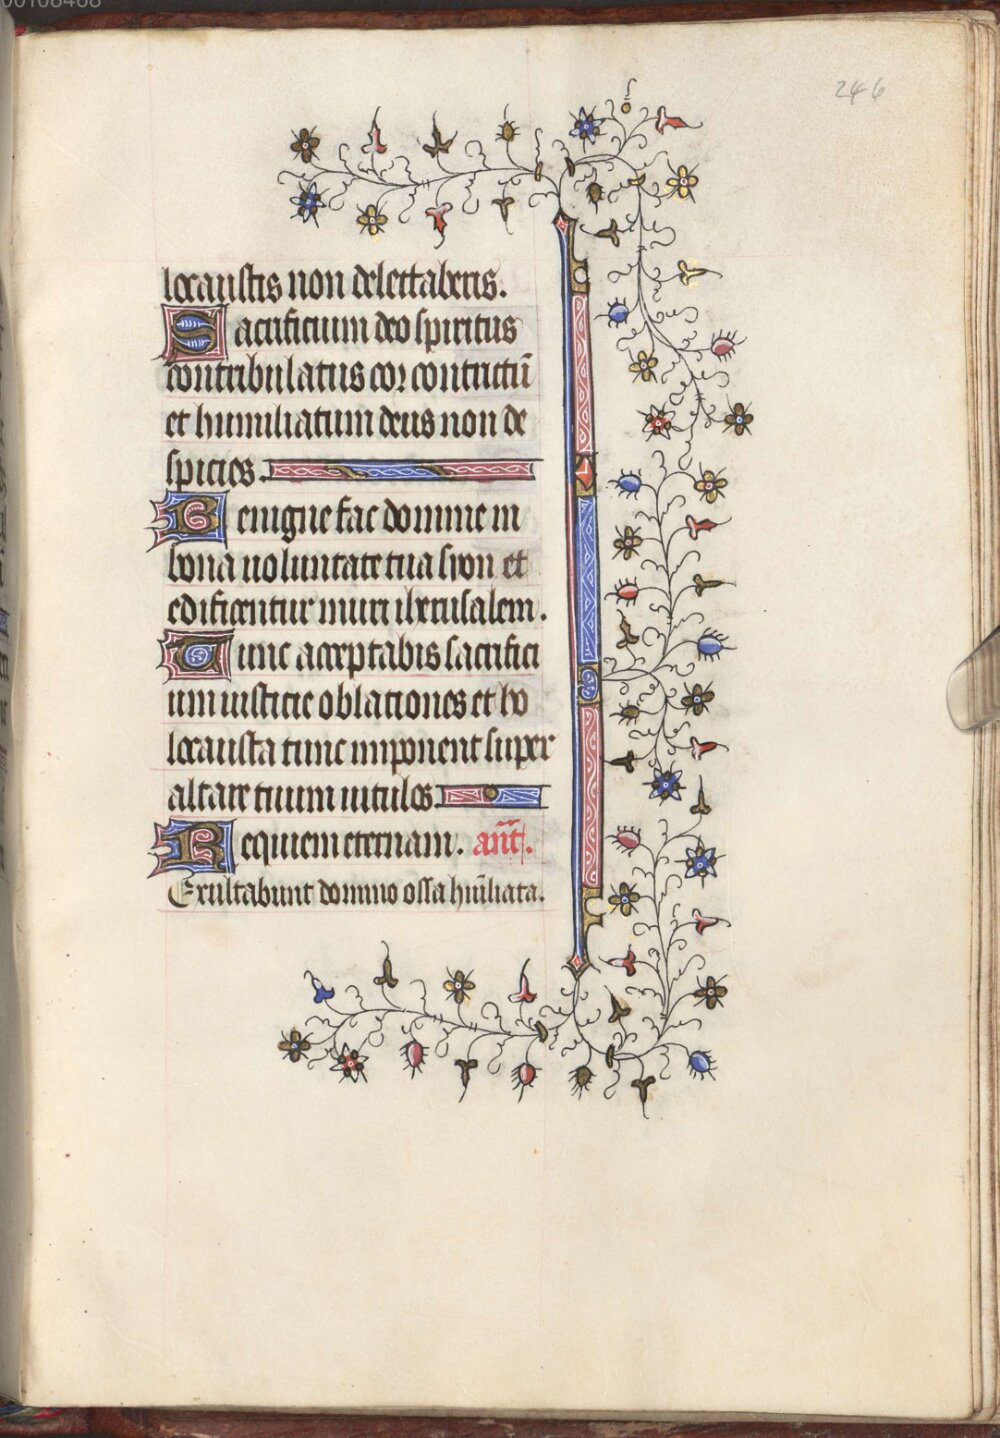 00108468
246
locaustis non delectaberis.
Sacrificium deo spiritus
contribulatus cor contritū
et humiliatum deus non de
spicies.
Benigne fac domine in
bona uoluntate tua syon et
edificentur muri iherusalem.
Tunc acceptabis sacrifici
um iusticie oblationes et ho
locausta tunc imponent super
altare tuum uitulos.
Requiem eternam. anī.
Exultabunt domino ossa hūiliata.